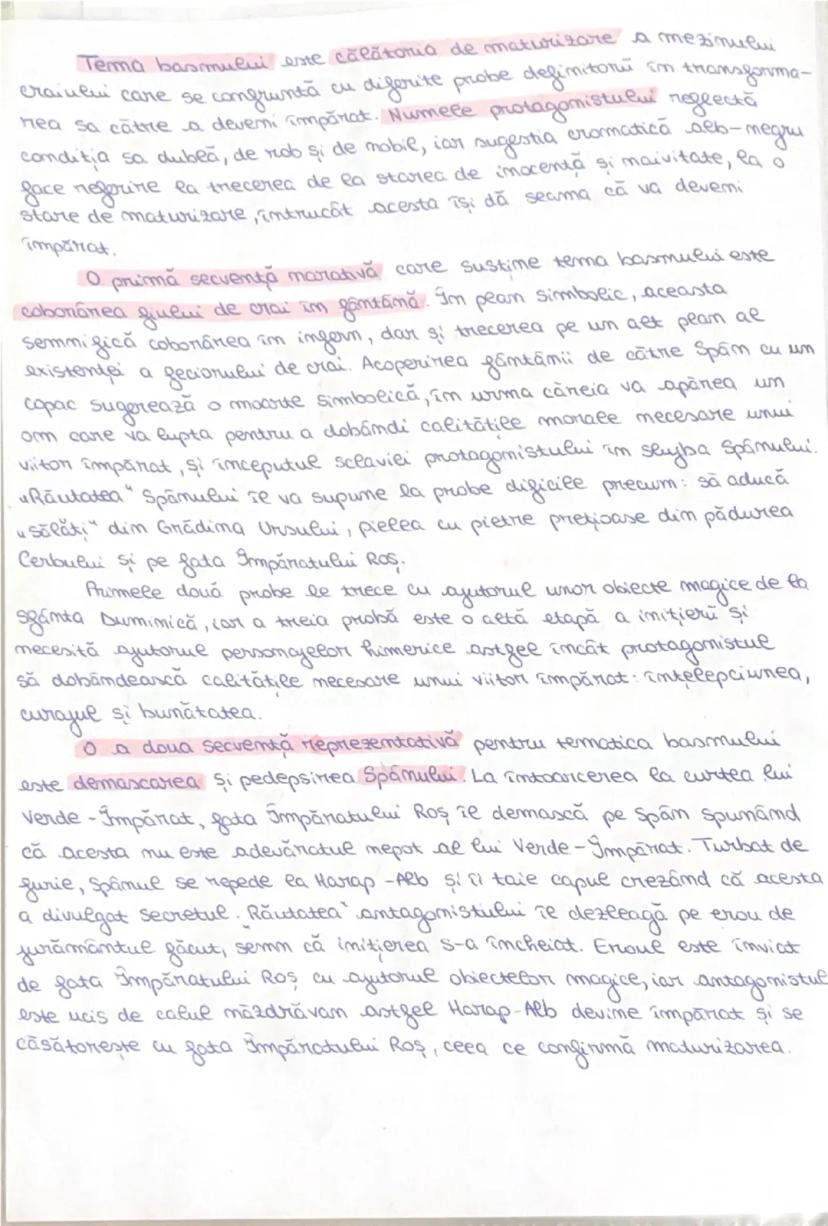 Tema basmului este călătoria de maturizare a mezinului
craiului care se confruntă cu diferite probe definitorii în transforma-
rea sa către a deveni împărat. Numele protagonistului reflectă
condiția sa dublă, de rob și de nobil, iar sugestia cromatică alb-negru
face referire la trecerea de la starea de inocență și naivitate, la o
stare de maturizare, întrucât acesta își dă seama că va deveni
împărat.
O primă secvență narativă care susține tema basmului este
coborârea fiului de crai în fântână. În plan simbolic, aceasta
semnifică coborârea în infern, dar și trecerea pe un alt plan al
existenței a feciorului de crai. Acoperirea fântânii de către Spân cu un
capac sugerează o moarte simbolică, în urma căreia va apărea un
om care va lupta pentru a dobândi calitățile morale necesare unui
viitor împărat, și începutul sclaviei protagonistului în slujba Spânului.
„Răutatea" Spânului îl va supune la probe dificile precum: să aducă
„sălăți" din Grădina Ursului, pielea cu pietre prețioase din pădurea
Cerbului și pe fata Împăratului Roș.
Primele două probe le trece cu ajutorul unor obiecte magice de la
sfânta Duminică, iar a treia probă este o altă etapă a inițierii și
necesită ajutorul personajelor himerice astfel încât protagonistul
să dobândească calitățile necesare unui viitor împărat: înțelepciunea,
curajul și bunătatea.
O a doua secvență reprezentativă pentru tematica basmului
este demascarea și pedepsirea Spânului. La întoarcerea la curtea lui
Verde-Împărat, fata Împăratului Roș îl demască pe Spân spunând
că acesta nu este adevăratul nepot al lui Verde-Împărat. Turbat de
furie, Spânul se repede la Harap-Alb și îi taie capul crezând că acesta
a divulgat secretul. „Răutatea" antagonistului îl dezleagă pe erou de
jurământul făcut, semn că inițierea s-a încheiat. Eroul este înviat
de fata Împăratului Roș cu ajutorul obiectelor magice, iar antagonistul
este ucis de calul năzdrăvan astfel Harap-Alb devine împărat și se
căsătorește cu fata Împăratului Roș, ceea ce confirmă maturizarea.